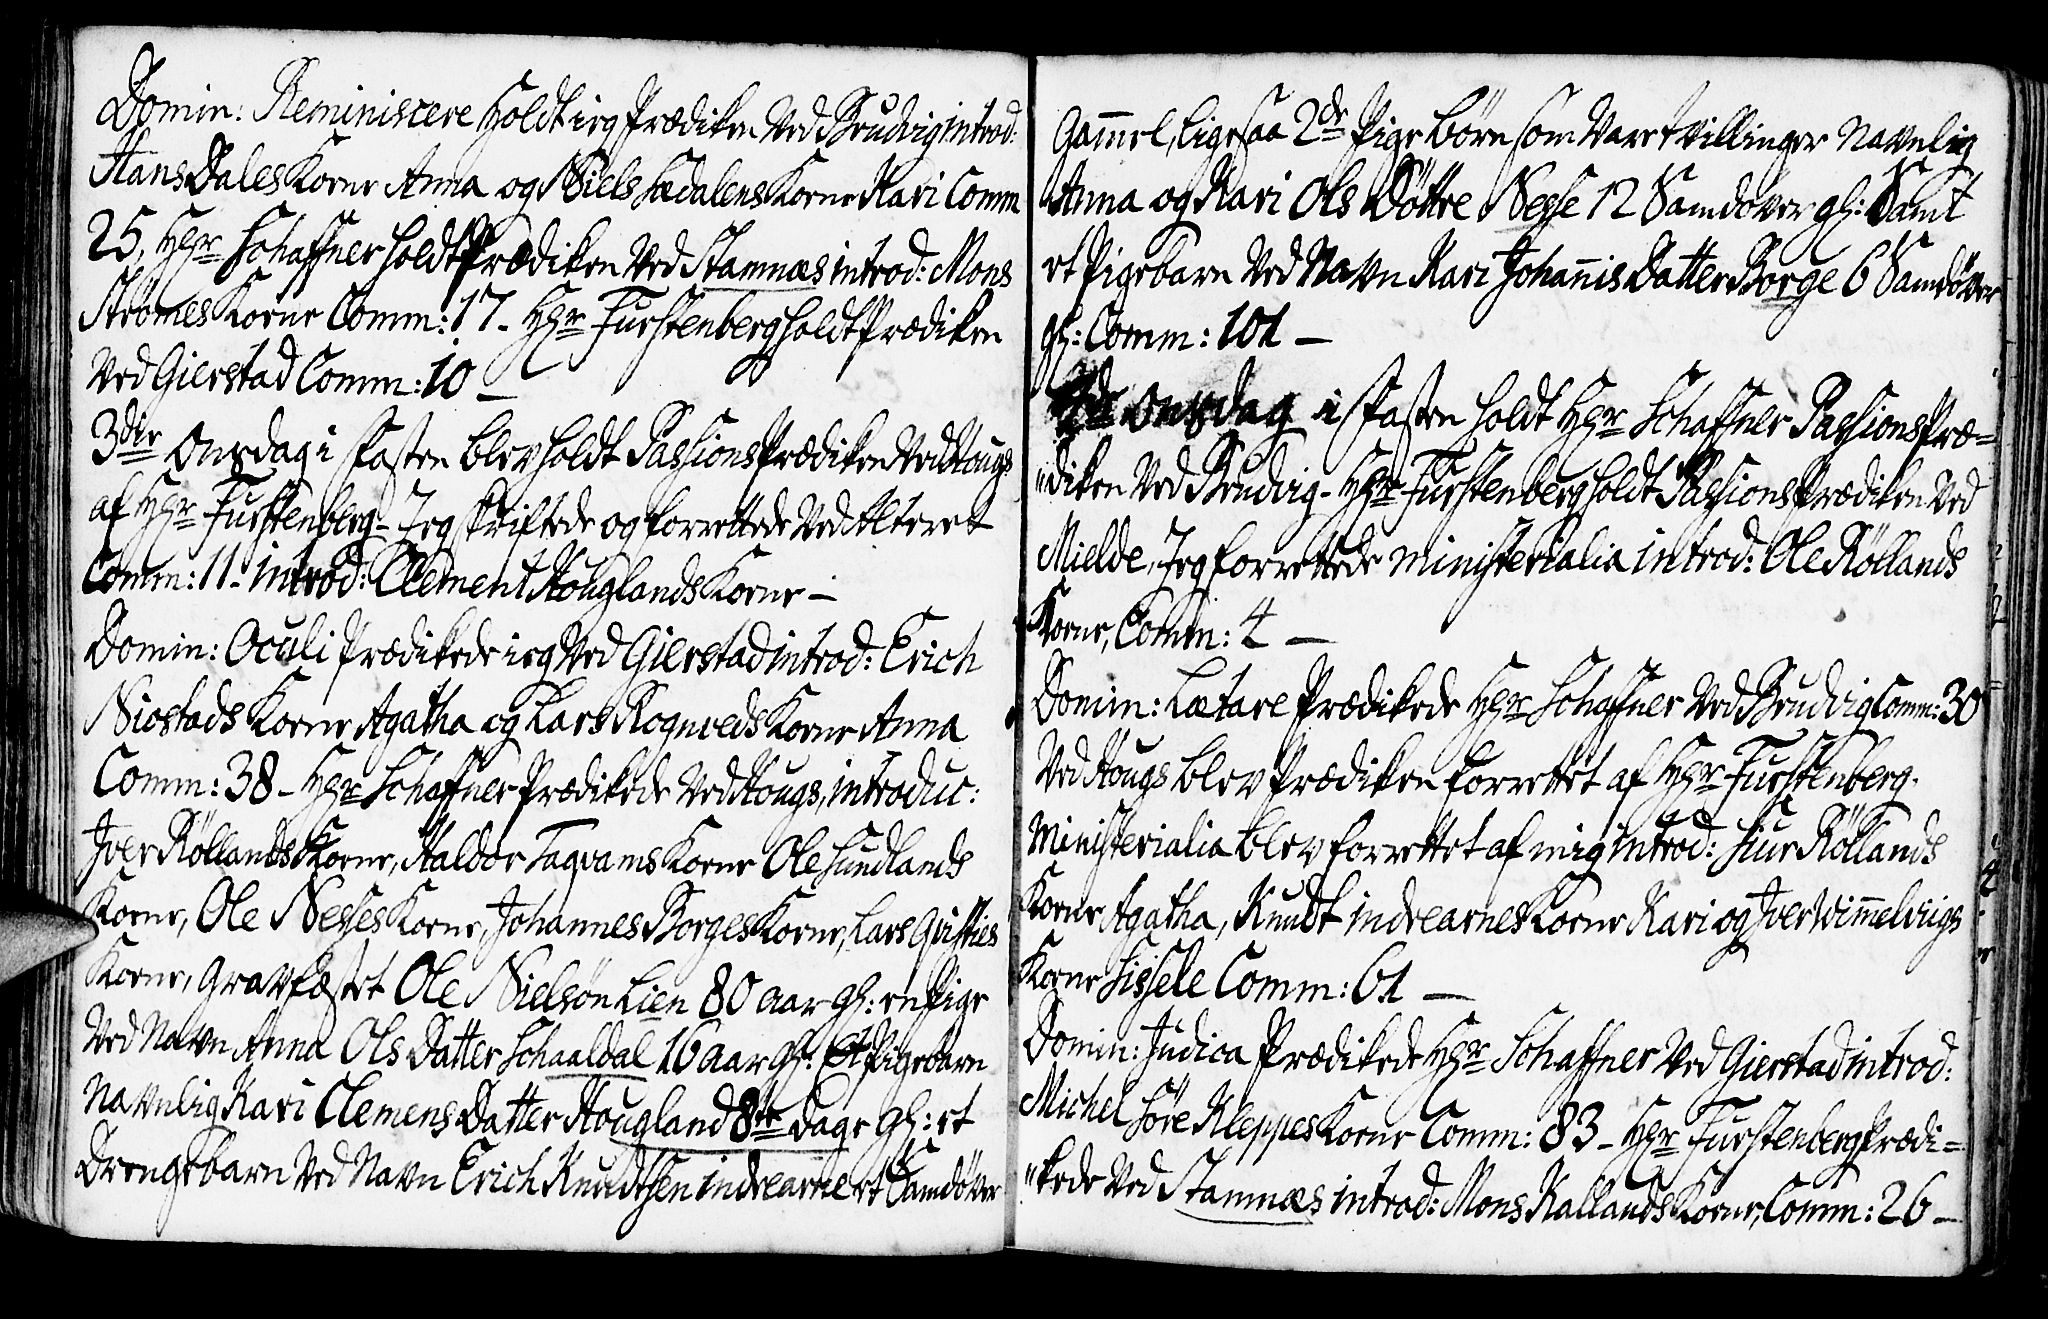 Domin: Reminiscere Holdt ieg Prædiken Ved Brudvig introd:
Hans Dales Kone Anna og Niels Sædalens Kone Kari Comm
25, Hhr Schaffner holdt Prædiken Ved Stamnæs introd: Mons
Strømes Kone Comm: 17 - Hhr Furstenberg holdt Prædiken
Ved Gierstad Comm: 10 -
3die Onsdag i Fasten blev holdt Passions Prædiken Ved Hougs
af Hhr Furstenberg - Jeg skriftede og forrettede Ved Alteret
Comm: 11 - introd: Clement Houglands Kone -
Domin: Oculi Prædikede ieg Ved Gierstad introd: Erich
Niostads Kone Agatha og Lars Rognveds Kone Anna
Comm: 38 - Hhr Schaffner Prædikede Ved Hougs, introduc:
Iver Röllands Kone, Haldor Taqvams Kone Ole Sundlands
Kone, Ole Nesses Kone, Johannes Borges Kone, Lars Qvisties
Kone, Gravfæstet Ole Nielsøn Lien 80 aar gl: en Pige
Ved Navn Anna Ols Datter Schaaldal 16 aar gl: Et Pigebarn
Navnlig Kari Clemens Datter Hougland 8te Dage gl: et
Drengebarn Ved Navn Erich Knudtsen indrearne et Samdøver
Gam̅el, Ligesaa 2de Pige Børn som Vare tvillinger Navnlig
Anna og Kari Ols Döttre Nesse 12 Samdøver gl: Samt
et Pigebarn Ved Navn Kari Johan̅is Datter Borge 6 Samdøver
gl: Comm: 101 -
Onsdag i Fasten holdt Hhr Schaffner Passions Præ=
"diken Ved Brudvig - Hhr Furstenberg holdt Passions Prædiken Ved
Mielde, Jeg forrettede ministerialia introd: Ole Röllands
Kone, Comm: 4 -
Domin: Lætare Prædikede Hhr Schaffner Ved Brudvig Comm: 30
Ved Hougs blev Prædiken forrettet af Hhr Furstenberg.
Ministerialia blev forrettet af mig introd: Siur Röllands
Kone Agatha, Knudt indrearnes Kone Kari og Iver Wim̅elviigs
Kone Sissele Comm: 61 -
Domin: Judica Prædikede Hhr Schaffner Ved Gierstad introd:
Michel Söre Kleppes Kone Comm: 83 - Hhr Furstenberg Prædi=
"kede Ved Stamnæs introd: Mons Kallands Kone, Comm: 26 -